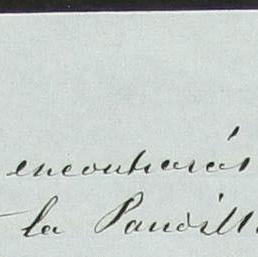 encontrarás
la Pandill